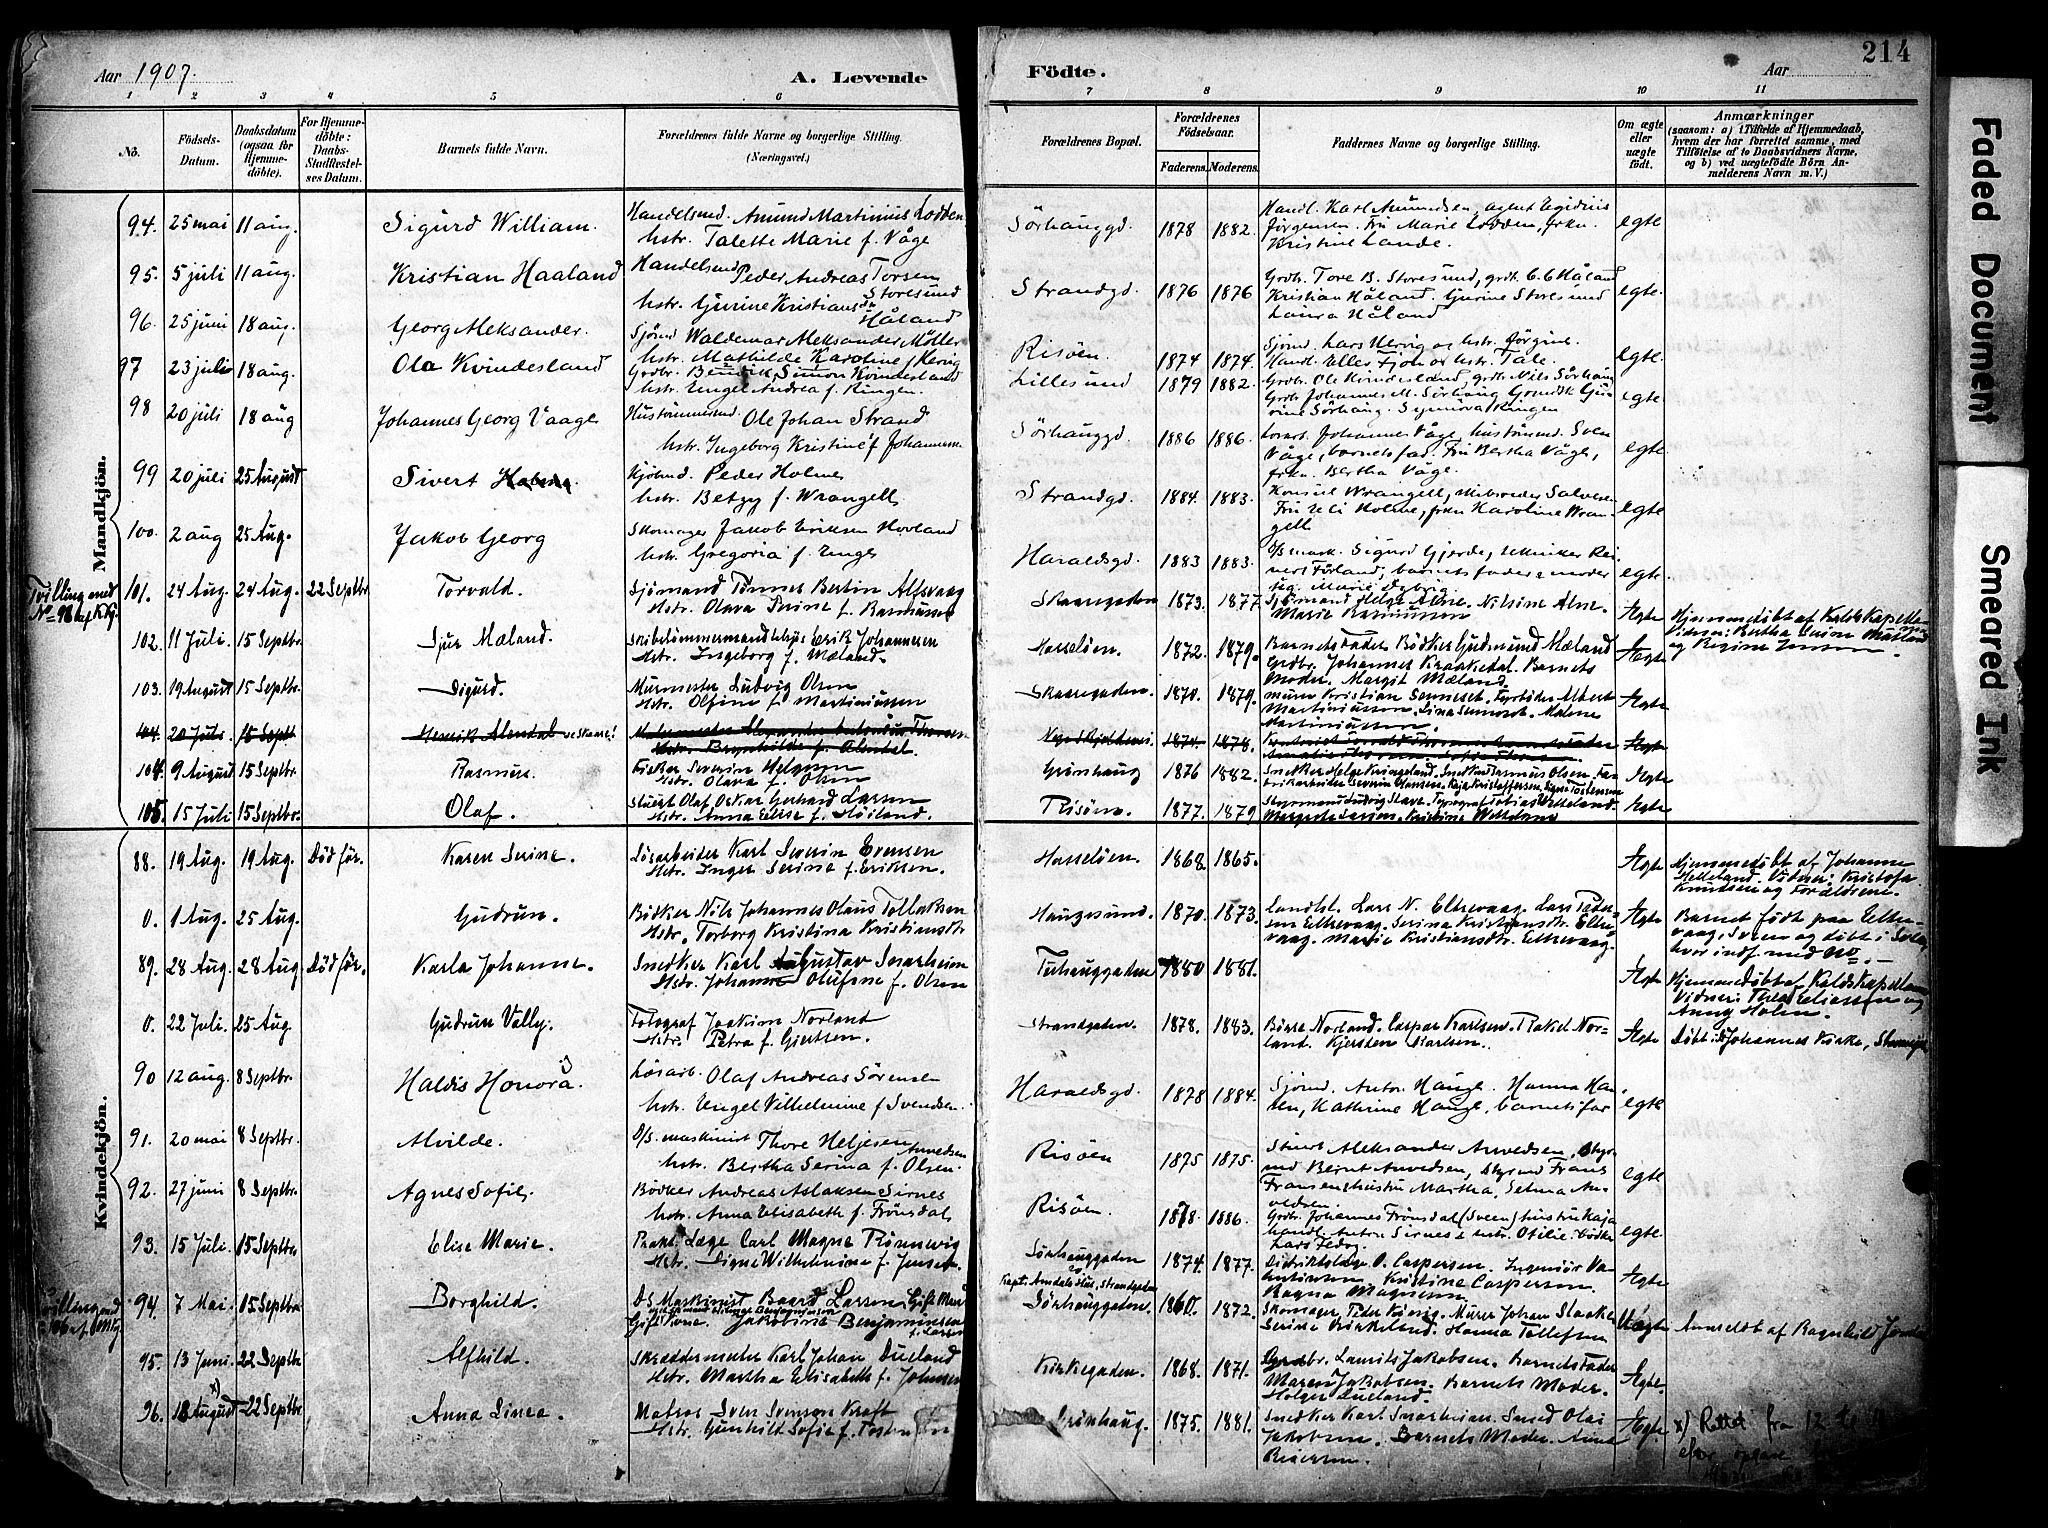 214
Aar 1907.
A. Levende
Födte.
Aar
1 2 3 4 5 6 7 8 9 10 11
No.
Födsels-Datum.
Daabsdatum (ogsaa for Hjemme-döbte).
For Hjemme-döbte: Daabs-Stadfæstel-ses Datum.
Barnets fulde Navn.
Forældrenes fulde Navne og borgerlige Stilling. (Næringsvei.)
Forældrenes Bopæl.
Forældrenes Födselsaar.
Faderens. Moderens.
Faddernes Navne og borgerlige Stilling.
Om ægte eller uægte födt.
Anmærkninger
(saasom: a) i Tilfælde af Hjemmedaab, hvem der har forrettet samme, med Tilföielse af to Daabsvidners Navne, og b) ved uægtefödte Börn An-melderens Navn m. V.)
Mandkjön.
94. 25 mai 11 aug. Sigurd William. Handelsmd. Amund Martinius Lodden
hstr. Talette Marie f. Våge
Sörhauggd. 1878 1882. Handl. Karl Amundsen, agent Egidius
Jörgensen. Fru Marie Lodden, frkn.
Kristine Lande. egte
95. 5 juli 11 aug. Kristian Haaland Handelsmd Peder Andreas Torsen
Storesund
hstr. Gurine Kristiansdr
Håland
Strandgd. 1876 1876 Grdbr. Tore B. Storesund, grdb.
Kristian Håland. Gurine Storesund
Laura Håland egte.
96. 25 juni 18 aug. Georg Aleksander. Sjömd Waldemar Aleksander Möller
hstr. Mathilde Karoline f Hervig
Risöen. 1874 1874. Sjömd. Lars Hervig og hstr. Jörgine.
Handl. Elles Fjon og hstr. Tale. egte.
97 23 juli 18 aug. Ola Kvindesland Grdbr. Bendik Simon Kvindesland
hstr. Engel Andrea f. Ringen.
Lillesund 1879 1882. Grdbr. Ole Kvindesland, grdb. Nils Sörhaug
Grdb. Johannes M. Sörhaug
Sörhaug. Synnöva Ringen egte
98 20 juli 18 aug Johannes Georg Vaage Hustömmermd. Ole Johan Strand
hstr. Ingeborg Kristine f Johannesen
Sörhauggd. 1886 1886. Johannes Våge, hustömmd. Sven
Våge, barnets fad. Fru Bertha Våge,
frkn. Bertha Våge. egte.
99 20 juli 25 August Sivert Holme. Kjöbmd. Peder Holme
hstr. Betzy f. Wrangell
Strandgd. 1884. 1883. Konsul Wrangell, skibsreder Salvesen
Fru Holme, frkn Karoline Wran-
gell egte
100. 2 aug 25 Aug. Jakob Georg Skomager Jakob Eriksen Hovland
hstr. Gregoria f. Enges
Haraldsgd. 1883 1883. Sigurd Gjerde, tekniker Rei-
nert Förland, barnets fader & moder
egte.
Tvilling med
No 96 af Kkj.
101. 24 Aug. 24 Aug. 22 Septbr Torvald. Sjömand Tönnes Bertin Alfsvaag
Hstr. Olava Serine f. Rasmussen
Skaaregaden 1873. 1877 Sjömand Helge Alne. Nilsine Alne.
Marie Rasmussen Ægte Hjemmedöbt af Kaldskapellanen
Vidner: Bertha
og Regine Jensen.
102. 11 Juli. 15 Septbr Sjur Mæland. Skibstömmermand Erik Johannesen
Hstr. Ingeborg f. Mæland.
Hasselöen. 1872. 1879. Barnets Fader Bödker Gudmund Mæland
Grdbr. Johannes Kraakedal. Barnets
Moder. Margit Mæland. Ægte
103. 19 August 15 Septbr. Sigurd. Murmester Ludvig Olsen
Hstr. Olfine f. Martiniussen
Skaaregaden. 1870. 1879. Murer Kristian Semeset. Albert
Martiniussen. Malene
Martiniussen. Ægte
104. 20 Juli. 15 Septr Henrik Alendal
Hstr. Brynhilde f. Alendal
1874. 1878. Ægte
104. 9 August 15 Septbr. Rasmus. Fisker Severin Helgesen
Hstr. Olava f. Olsen
Grönhaug 1876 1882. Snedker Helge Kringeland. Rasmus Olsen.
Kaja Kristoffersen. Ægte
105. 15 Juli 15 Septbr. Olaf. Stuert Olaf Oskar Gerhard Larsen
Hstr. Anna Elise f. Höiland.
Risöen. 1877. 1879 Styrmand Ludvig Stave. Typograf Tobias Vetteland.
Ægte
Kvindekjön.
88. 19 Aug. 19 Aug. Död för. Karen Serine. Lösarbeider Karl Severin Evensen
Hstr. Inger Serine f. Eriksen.
Hasselöen. 1868. 1865. Ægte Hjemmedöbt af Johanne
Helleland. Vidner: Kristofa
Knudsen og Forældrene.
0. 1 Aug. 25 Aug. Gudrun. Bödker Nils Johannes Olaus Tollaksen
Hstr. Torborg Kristina Kristiansdtr
Haugesund. 1870. 1873. Landhl. Lars N. Eltrevaag. Lars Peder-
sen Eltrevaag. Serina Kristiansdtr. Eltre-
vaag. Marie Kristiansdtr. Eltrevaag. Ægte Barnet födt paa Eltre-
vaag, Sveen og döbt i Sveen,
hvor indf. med No —
89. 28 Aug. 28 Aug Död för. Karla Johanne. Snedker Karl Gustav Snarheim
Hstr. Johanne Olufine f. Olsen
Tuhauggaden 1880 1881. Ægte Hjemmedöbt af Kaldskapellanen
Vidner: Thea Eliassen og
Anny Holm.
0. 22 Juli. 25 Aug. Gudrun Vally. Fotograf Joakim Norland
Hstr. Petra f. Gjertsen.
Strandgaden. 1878. 1883. Börre Norland. Caspar Karlsen. Rakel Nor-
land. Kjersten Karlsen. Ægte Döbt i St Johannes Kirke, Stavanger
90 12 aug. 8 Septbr. Haldis Honora. Lösarb. Olaf Andreas Sörensen
hstr. Engel Vilhelmine f Svendsen.
Haraldsgd. 1878 1884. Sjömd. Anton Hauge. Hanna Han-
sen, Kathrine Hauge, barnets far egte
91. 20 mai 8 Septbr. Alvilde. D/s. maskinist Thore Heljesen
Anvedsen
hstr. Bertha Serina f. Olsen.
Risöen 1875 1875. Stuert Aleksander Anvedsen, styr-
md Bernt Anvedsen, styrmd Frans
Fransen & hustru Martha, Selma An-
vedsen. egte
92. 27 juni 8 Septbr. Agnes Sofie. Bödker Andreas Aslaksen Sirnes
hstr. Anna Elisabeth f. Frönsdal
Risöen. 1878. 1886. Grdbr. Johannes Frönsdal (Sveen) hustru Kaja
handl. Anton Sirnes & hstr. Otilie. bödker
Lars Fedög. egte
93. 15 Juli. 15 Septbr. Elise Marie. Prakt. Læge Carl Magne Rönnevig
Hstr. Signe Wilhelmine f. Jensen.
Sörhauggaden 1874. 1877. Distriktslæge O. Caspersen. Ingeniör Va-
lentinsen. Kristine Caspersen.
Ragna Magnesen Ægte
Tvilling med
94. 7 Mai. 15 Septbr. Borghild. DS Maskinist Baard Larsen, Gift Mand
Gift Kone. Jakobine Benjaminsen
f. Larsen
Kapt. Amdals Hus, Strandgaden
Sörhauggaden. 1860. 1872. Skomager Peder König. Murer Johan Staakes.
Serine Virkeland. Hanna Tollefsen Uægte Anmeldt af Ragnhild
95. 13 Juni. 22 Septbr Alfhild. Skreddermester Karl Johan Dueland
Hstr. Martha Elisabeth f. Johnsen
Kirkegaden. 1868. 1871. Grdbr. Laurits Jakobsen. Barnets Fader
Maren Jakobsen. Barnets Moder.
Holger Dueland. Ægte.
96. 18 August x) 22 Septbr. Anna Linea. Matros Sven Svenson Kraft
Hstr. Gunhilt Sofie f.
Grönhaug. 1875. 1881. Snedker Karl Snarheim. Smed Olai
Jakobsen. Barnets Moder. Anna
Ægte x) Rettet fra 12
efter opgave
Faded Document
Smeared Ink